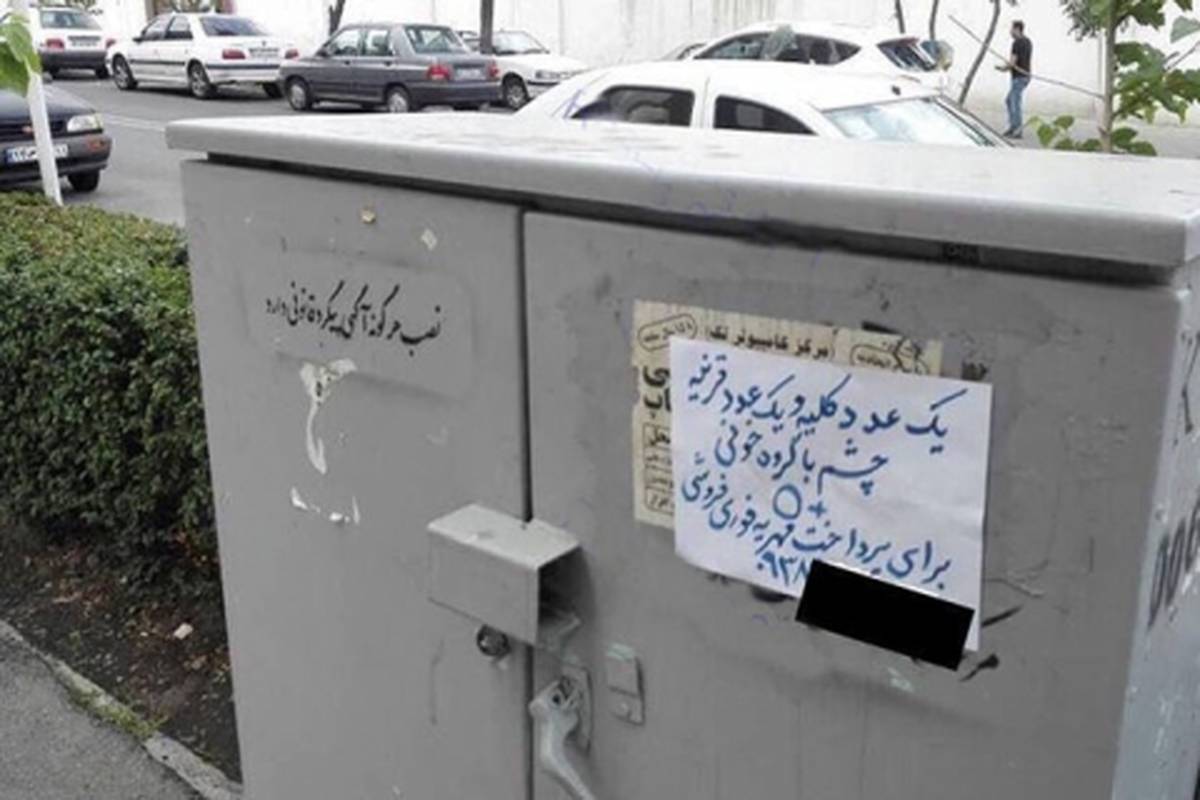 نصب هرگونه آگهی پیگرد قانونی دارد
مرکز کامپیوتر تک
یک عدد کلیه و یک عدد قرنیه
چشم با گروه خونی
O+
برای پرداخت مهریه فوری فروشی
۰۹۳۸